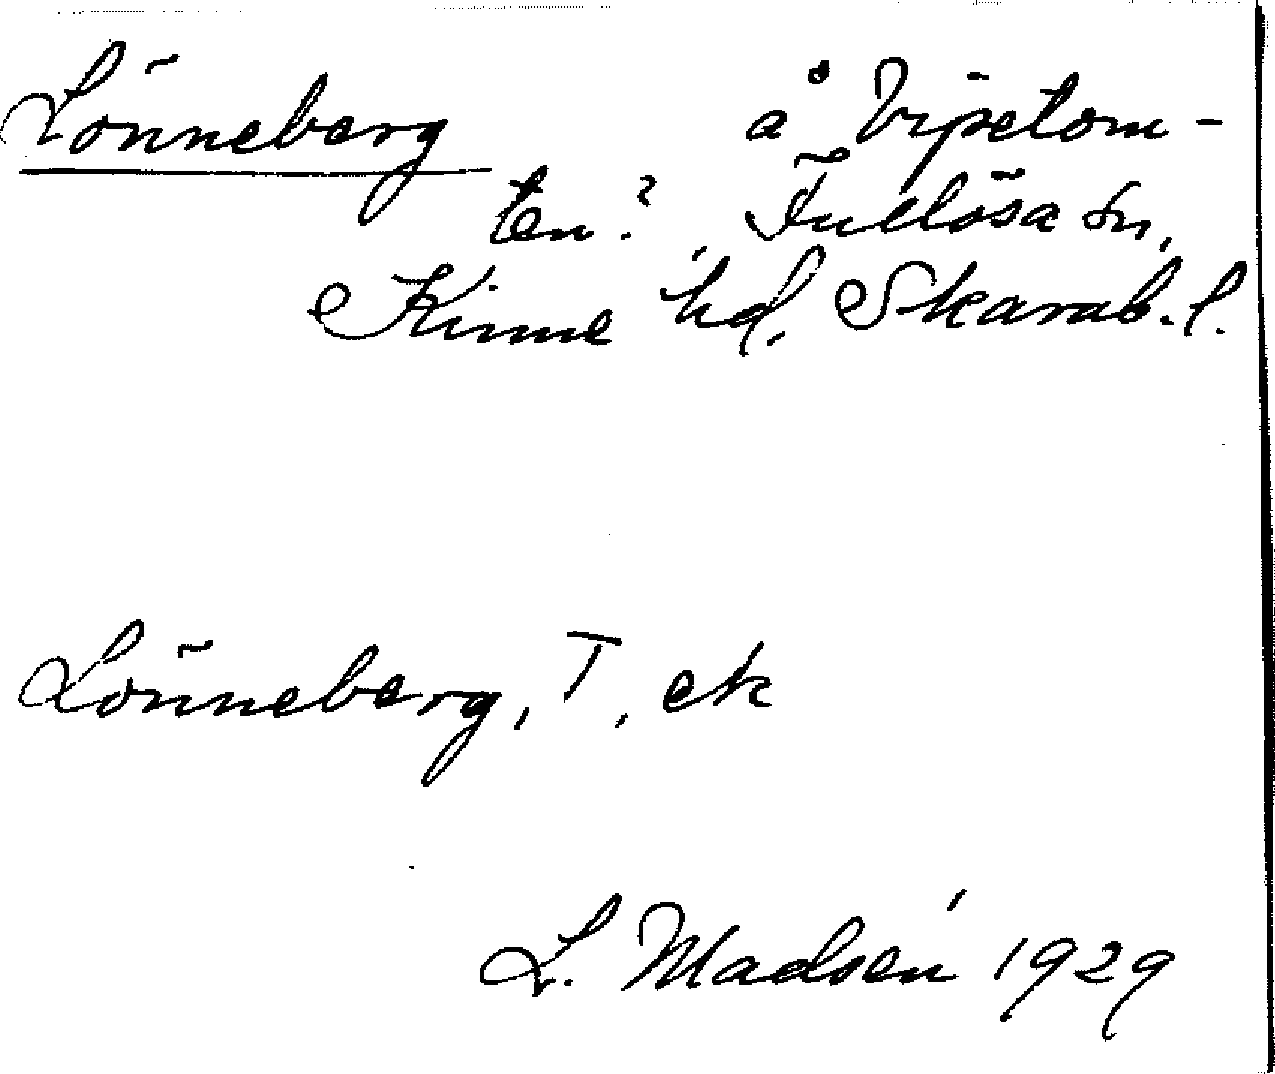 Lönneberg å Vipetom-
ten?, Fullösa sn,
Kinne hd. Skarab. l.
Lönneberg, T, ek
L. Madsén 1929